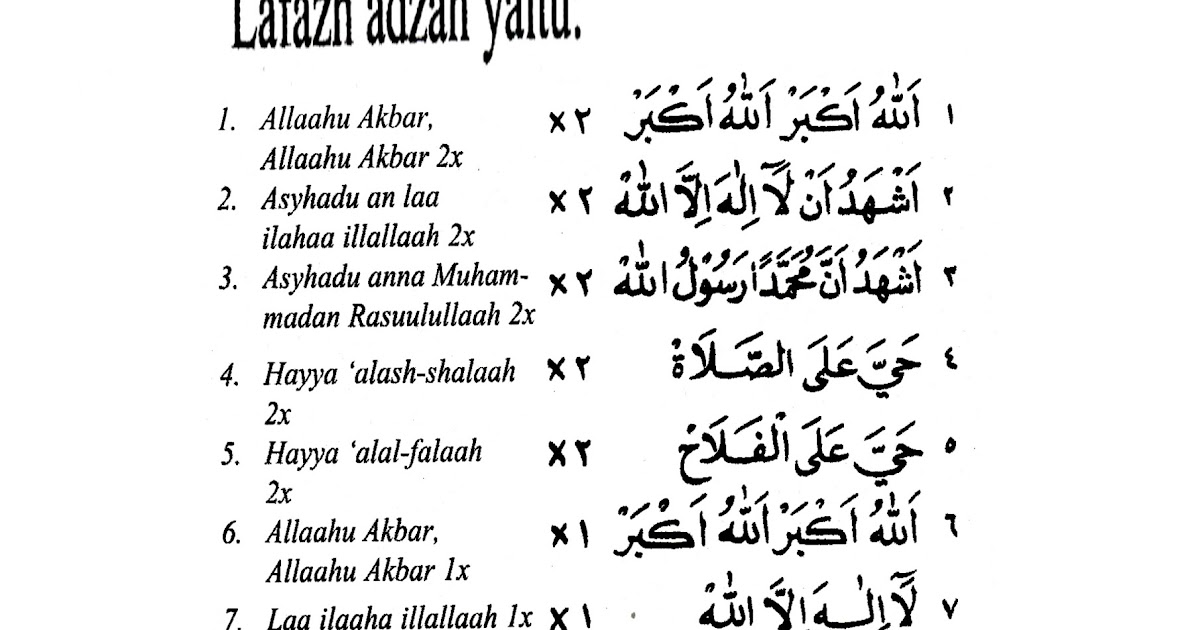 Lafazh adzan yaitu:
1. Allaahu Akbar,
Allaahu Akbar 2x
١ اَللّٰهُ اَكْبَرْ اَللّٰهُ اَكْبَرْ ٢ ×
2. Asyhadu an laa
ilahaa illallaah 2x
٢ اَشْهَدُ اَنْ لَآ اِلٰهَ اِلَّا اللّٰهْ ٢ ×
3. Asyhadu anna Muham-
madan Rasuulullaah 2x
٣ اَشْهَدُ اَنَّ مُحَمَّدًا رَسُوْلُ اللّٰهْ ٢ ×
4. Hayya ‘alash-shalaah
2x
٤ حَيَّ عَلَى الصَّلَاةْ ٢ ×
5. Hayya ‘alal-falaah
2x
٥ حَيَّ عَلَى الْفَلَاحْ ٢ ×
6. Allaahu Akbar,
Allaahu Akbar 1x
٦ اَللّٰهُ اَكْبَرْ اَللّٰهُ اَكْبَرْ ١ ×
7. Laa ilaaha illallaah 1x
٧ لَآ اِلٰهَ اِلَّا اللّٰهْ ١ ×